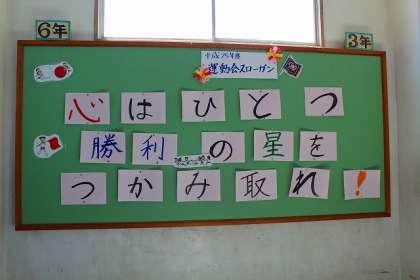 6年
3年
平成25年度
運動会スローガン
心はひとつ
勝利の星を
つかみ取れ!